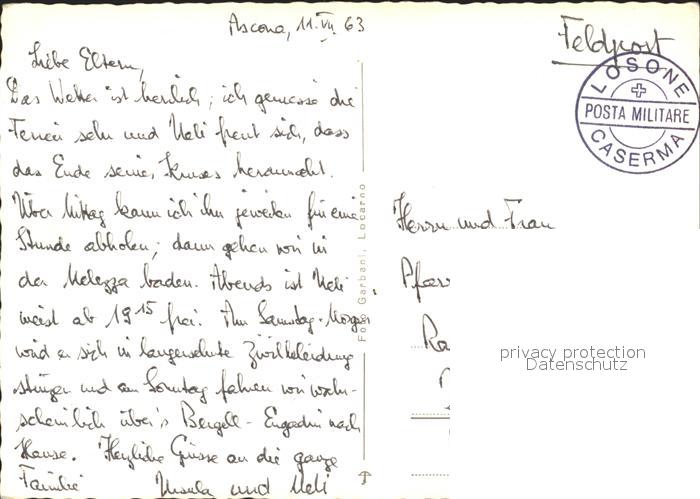 Ascona, 11. VII. 63
Liebe Eltern,
Das Wetter ist herrlich; ich geniesse die
Ferien sehr und Ueli freut sich, dass
das Ende seines Kurses herannaht.
Über Mittag kann ich ihn jeweilen für eine
Stunde abholen; dann gehen wir in
der Melezza baden. Abends ist Ueli
meist ab 19 15 frei. Am Samstag-Morgen
wird er sich in langersehnte Zivilkleidung
stürzen und am Sonntag fahren wir wahr-
scheinlich über's Bergell-Engadin nach
Hause. Herzliche Grüsse an die ganze
Familie Ursula und Ueli
Foto Garbani, Locarno
Feldpost
LOSONE
POSTA MILITARE
CASERMA
Herrn und Frau
Pfar
privacy protection
Datenschutz